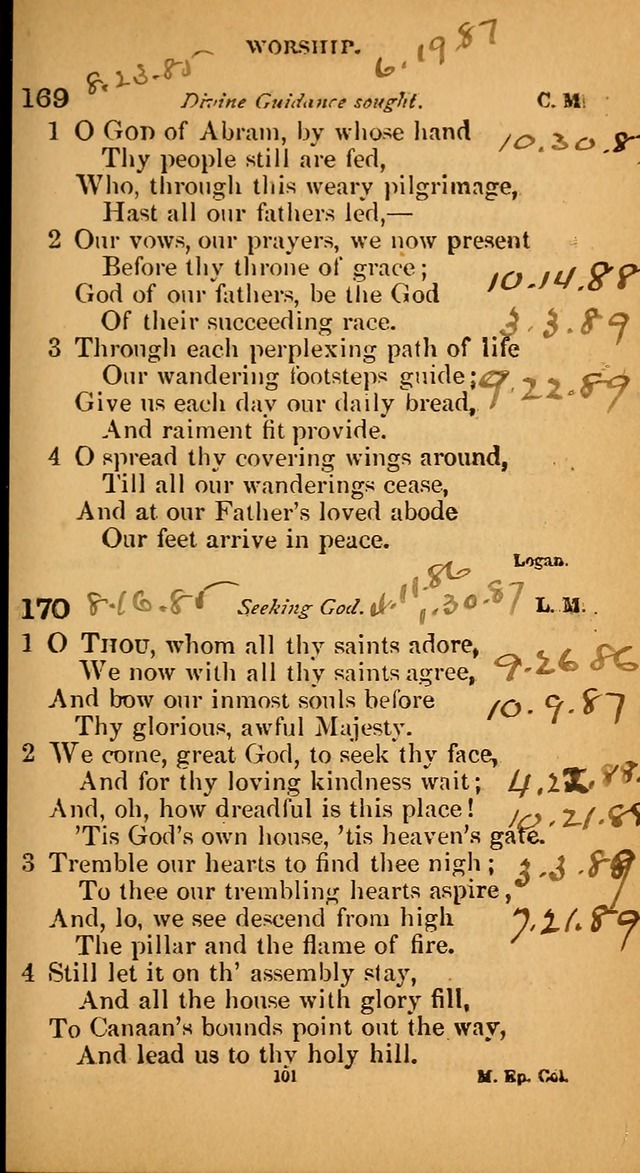 WORSHIP.
6.19 87
8.23.85
169 Divine Guidance sought. C. M.
1 O GOD of Abram, by whose hand
10.30.8
Thy people still are fed,
Who, through this weary pilgrimage,
Hast all our fathers led,—
2 Our vows, our prayers, we now present
Before thy throne of grace;
10.14.88
God of our fathers, be the God
Of their succeeding race.
3.3.89
3 Through each perplexing path of life
Our wandering footsteps guide;
9.22.89
Give us each day our daily bread,
And raiment fit provide.
4 O spread thy covering wings around,
Till all our wanderings cease,
And at our Father's loved abode
Our feet arrive in peace.
Logan.
170 8.16.85 Seeking God. 11 86 1.30.87 L. M.
1 O THOU, whom all thy saints adore,
We now with all thy saints agree,
9.26 86
And bow our inmost souls before
10.9.87
Thy glorious, awful Majesty.
2 We come, great God, to seek thy face,
And for thy loving kindness wait;
And, oh, how dreadful is this place!
10.21.88
'Tis God's own house, 'tis heaven's gate.
3 Tremble our hearts to find thee nigh;
3.3.89
To thee our trembling hearts aspire,
And, lo, we see descend from high
7.21.89
The pillar and the flame of fire.
4 Still let it on th' assembly stay,
And all the house with glory fill,
To Canaan's bounds point out the way,
And lead us to thy holy hill.
101 M. Ep. Col.